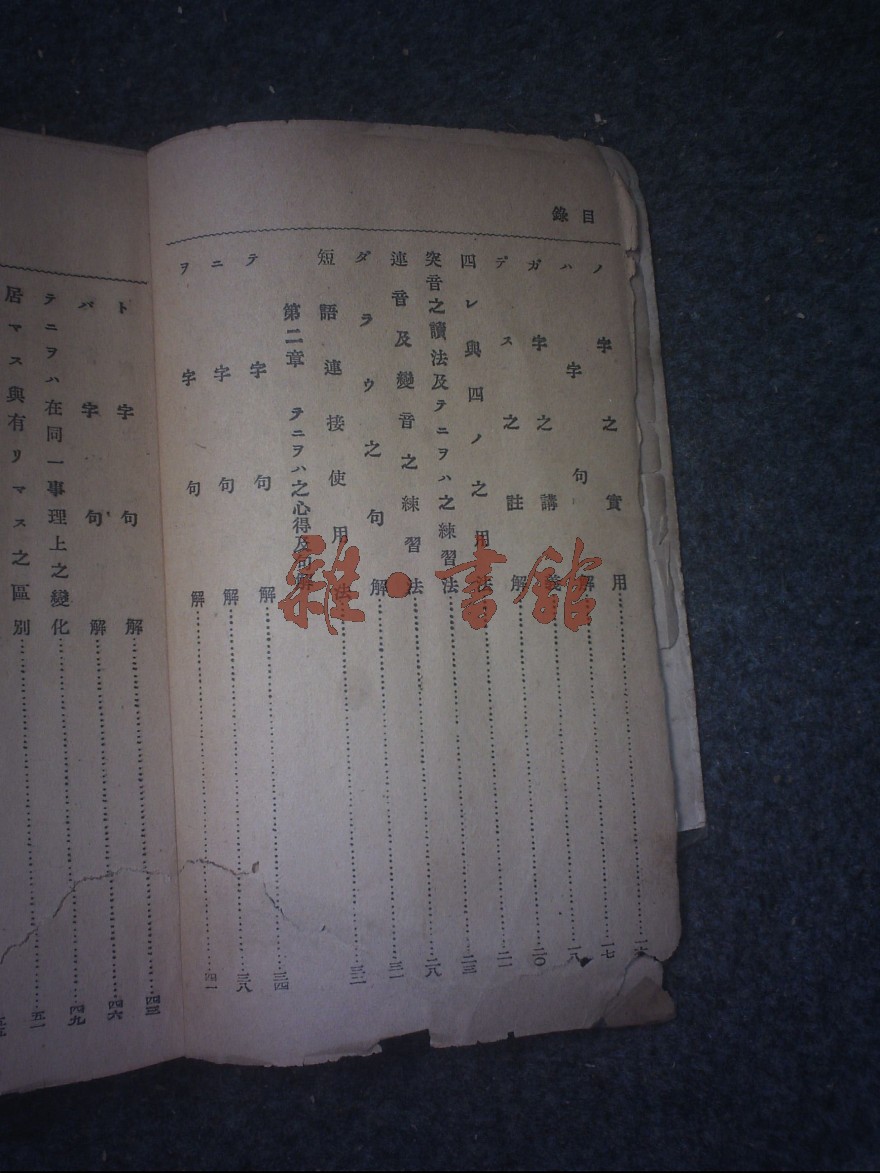 目錄
ノ字之實用……一
ハ字句解……一七
ガ字之講義……一八
デス之註解……二〇
四レ與四ノ之用法……二一
突音之讀法及テニヲハ之練習法……二三
連音及變音之練習法……二八
ダラウ之句解……三一
短語連接使用法……三二
第二章 テニヲハ之心得及句解
テ字句解……三四
ニ字句解……三八
ヲ字句解……四一
ト字句解……四三
バ字句解……四六
テニヲハ在同一事理上之變化……四九
居マス與有リマス之區別……五一
雜·書館